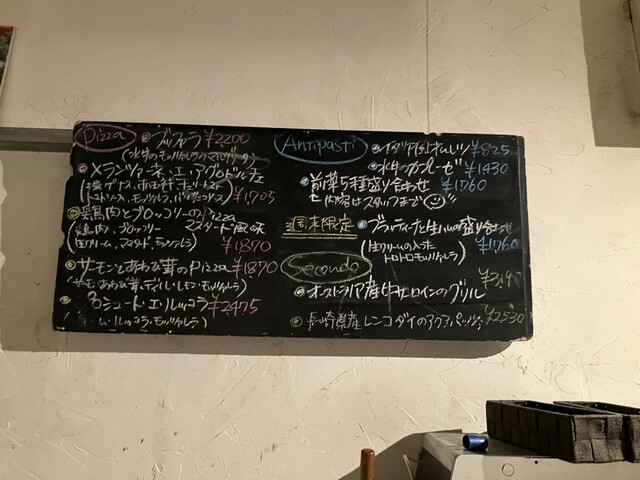 Pizza
ブッファラ ¥2200
(水牛のモッツァレラのマルゲリータ)
メランツァーネ・エ・アグロドルチェ
¥1705
鶏肉とブロッコリーのPizza
鶏肉、ブロッコリー マスタード風味
生クリーム、マスタード、モッツァレラ) ¥1870
サーモンとあわび茸のPizza ¥1870
(サーモン・あわび茸・ディル・レモン・モッツァレラ)
プロシュート・エ・ルッコラ ¥2475
ルッコラ・モッツァレラ)
Antipasti
¥825
水牛のカプレーゼ ¥1430
前菜5種盛り合わせ ¥1760
内容はスタッフまで
週末限定
ブラッティーナと生ハムの盛り合わせ
(生クリームの入った
トロトロモッツァレラ) ¥1760
Secondo
オーストラリア産牛サーロインのグリル
長崎県産レンコダイのアクアパッツァ ¥2530